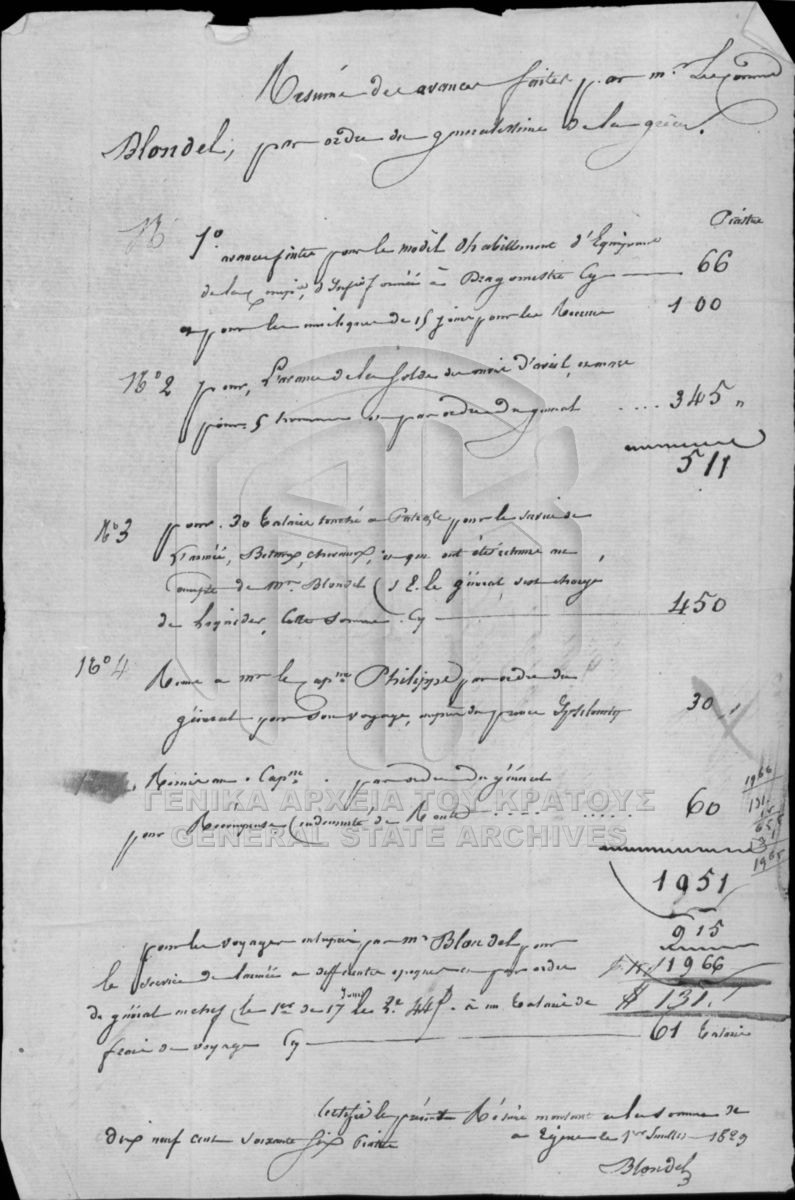 Résumé des avances faites par mr
Blondel, par ordre du generalissime de la grèce.
Piastre
1o avances faites pour le modèl d'habillement d'Equipement
de la formée à Dragomestre Cy 66
pour les de 15 jours pour les Recrues 100
No 2 pour, L'avance de la solde du mois d'avril,
pour 5 hommes par ordre du general .... 345 "
511
No 3 pour 30 talaris touché a pour le service de
L'armée, Bateaux, chevaux,
Compte de Mr Blondel (S. E. le général s'est chargé
de Liquider, Cette Somme. Cy 450
No 4 Remis a mr le Capne Philippe par ordre du
général pour son voyage, auprès du prince Ypsilanty 30 "
Remis au Capne par ordre du général
pour Récompense (indemnité de Route ..... 60
ΓΕΝΙΚΑ ΑΡΧΕΙΑ ΤΟΥ ΚΡΑΤΟΥΣ
GENERAL STATE ARCHIVES
1966
131
1951
915
pour les voyages entrepris par mr Blondel pour
le service de l'armée a differentes epoques par ordre 1966
du général en chef (le 1er de 17 jours le 2e 44 j. à un talari de $ 131.
frais de voyage Cy 61 talaris
Certifié le présent Résumé montant a la somme de
dix neuf cent soixante six Piastre
a Egine le 1er Juillet 1829
Blondel